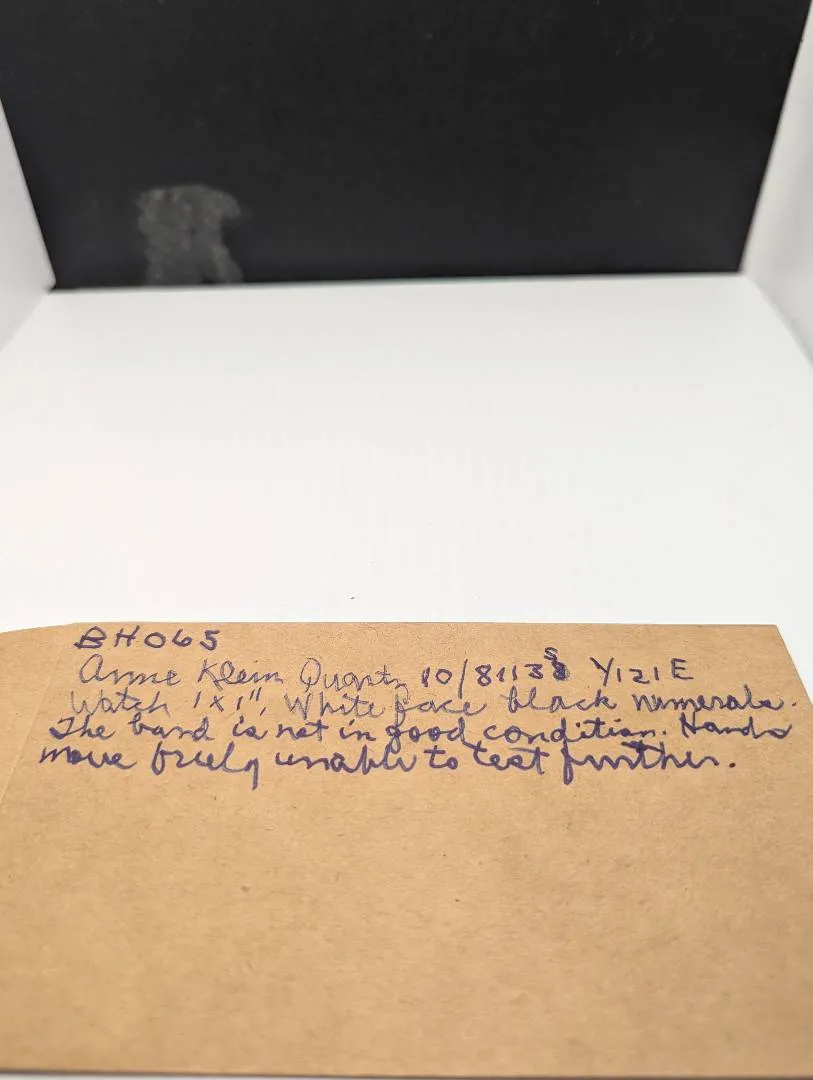 BH065
Anne Klein Quartz 10/8113 Y121E
Watch 1x1", White face black numerals.
The band is not in good condition. Hands
move freely unable to test further.